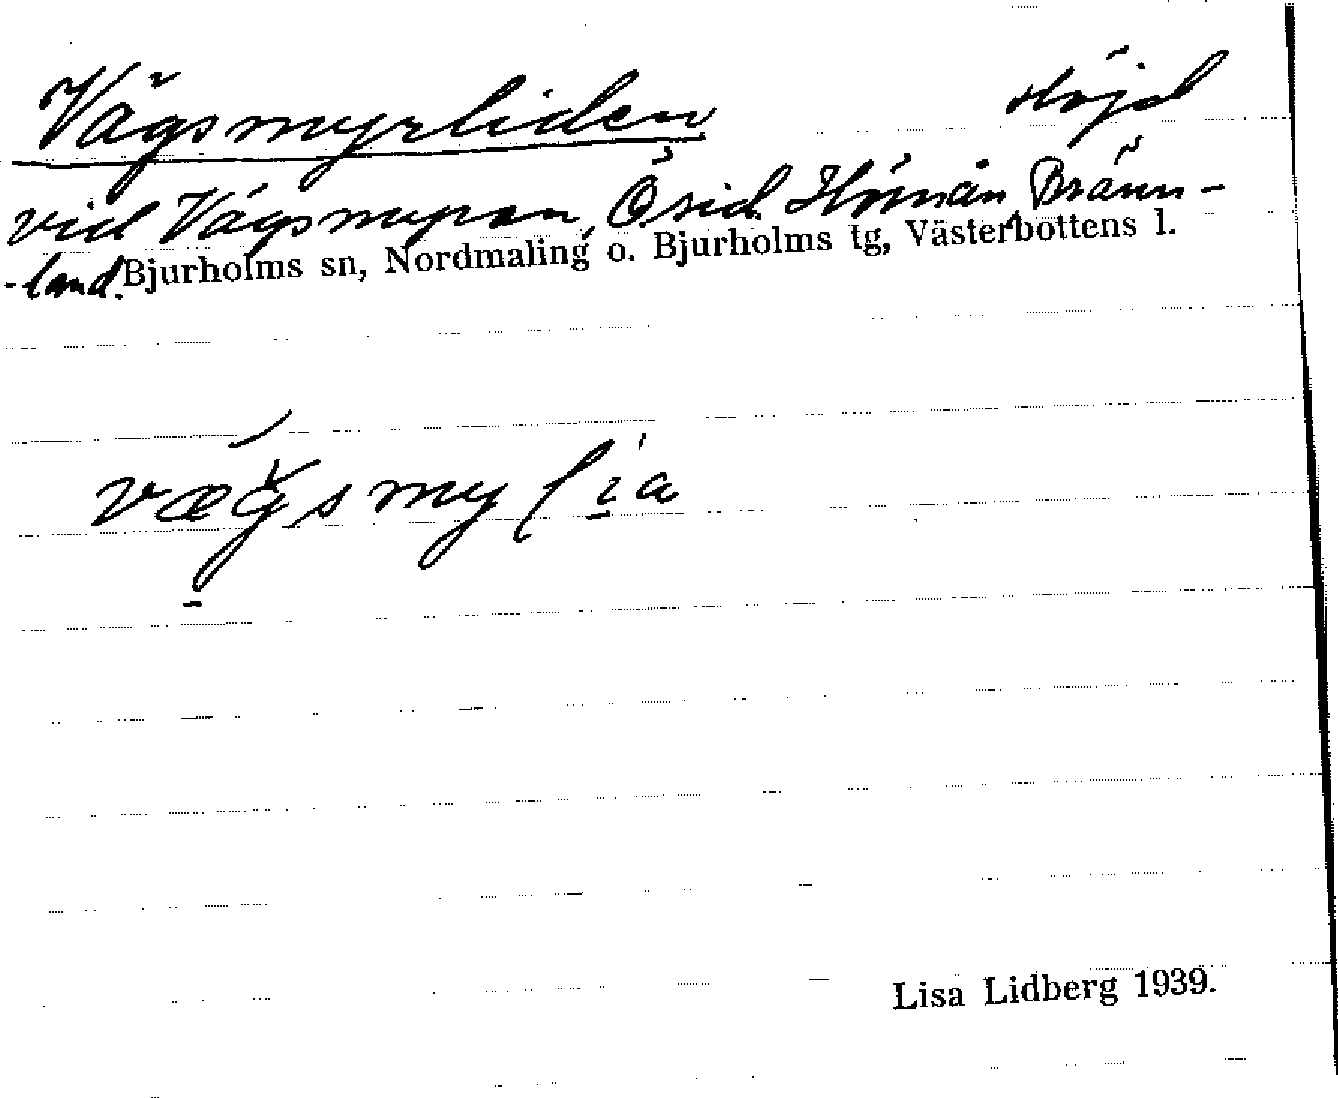 Vägsmyrliden Höjd
vid Vägsmyran, Ö sid. Hörnån, Bränn-
-land. Bjurholms sn, Nordmaling o. Bjurholms tg, Västerbottens l.
vægsmylia
Lisa Lidberg 1939.